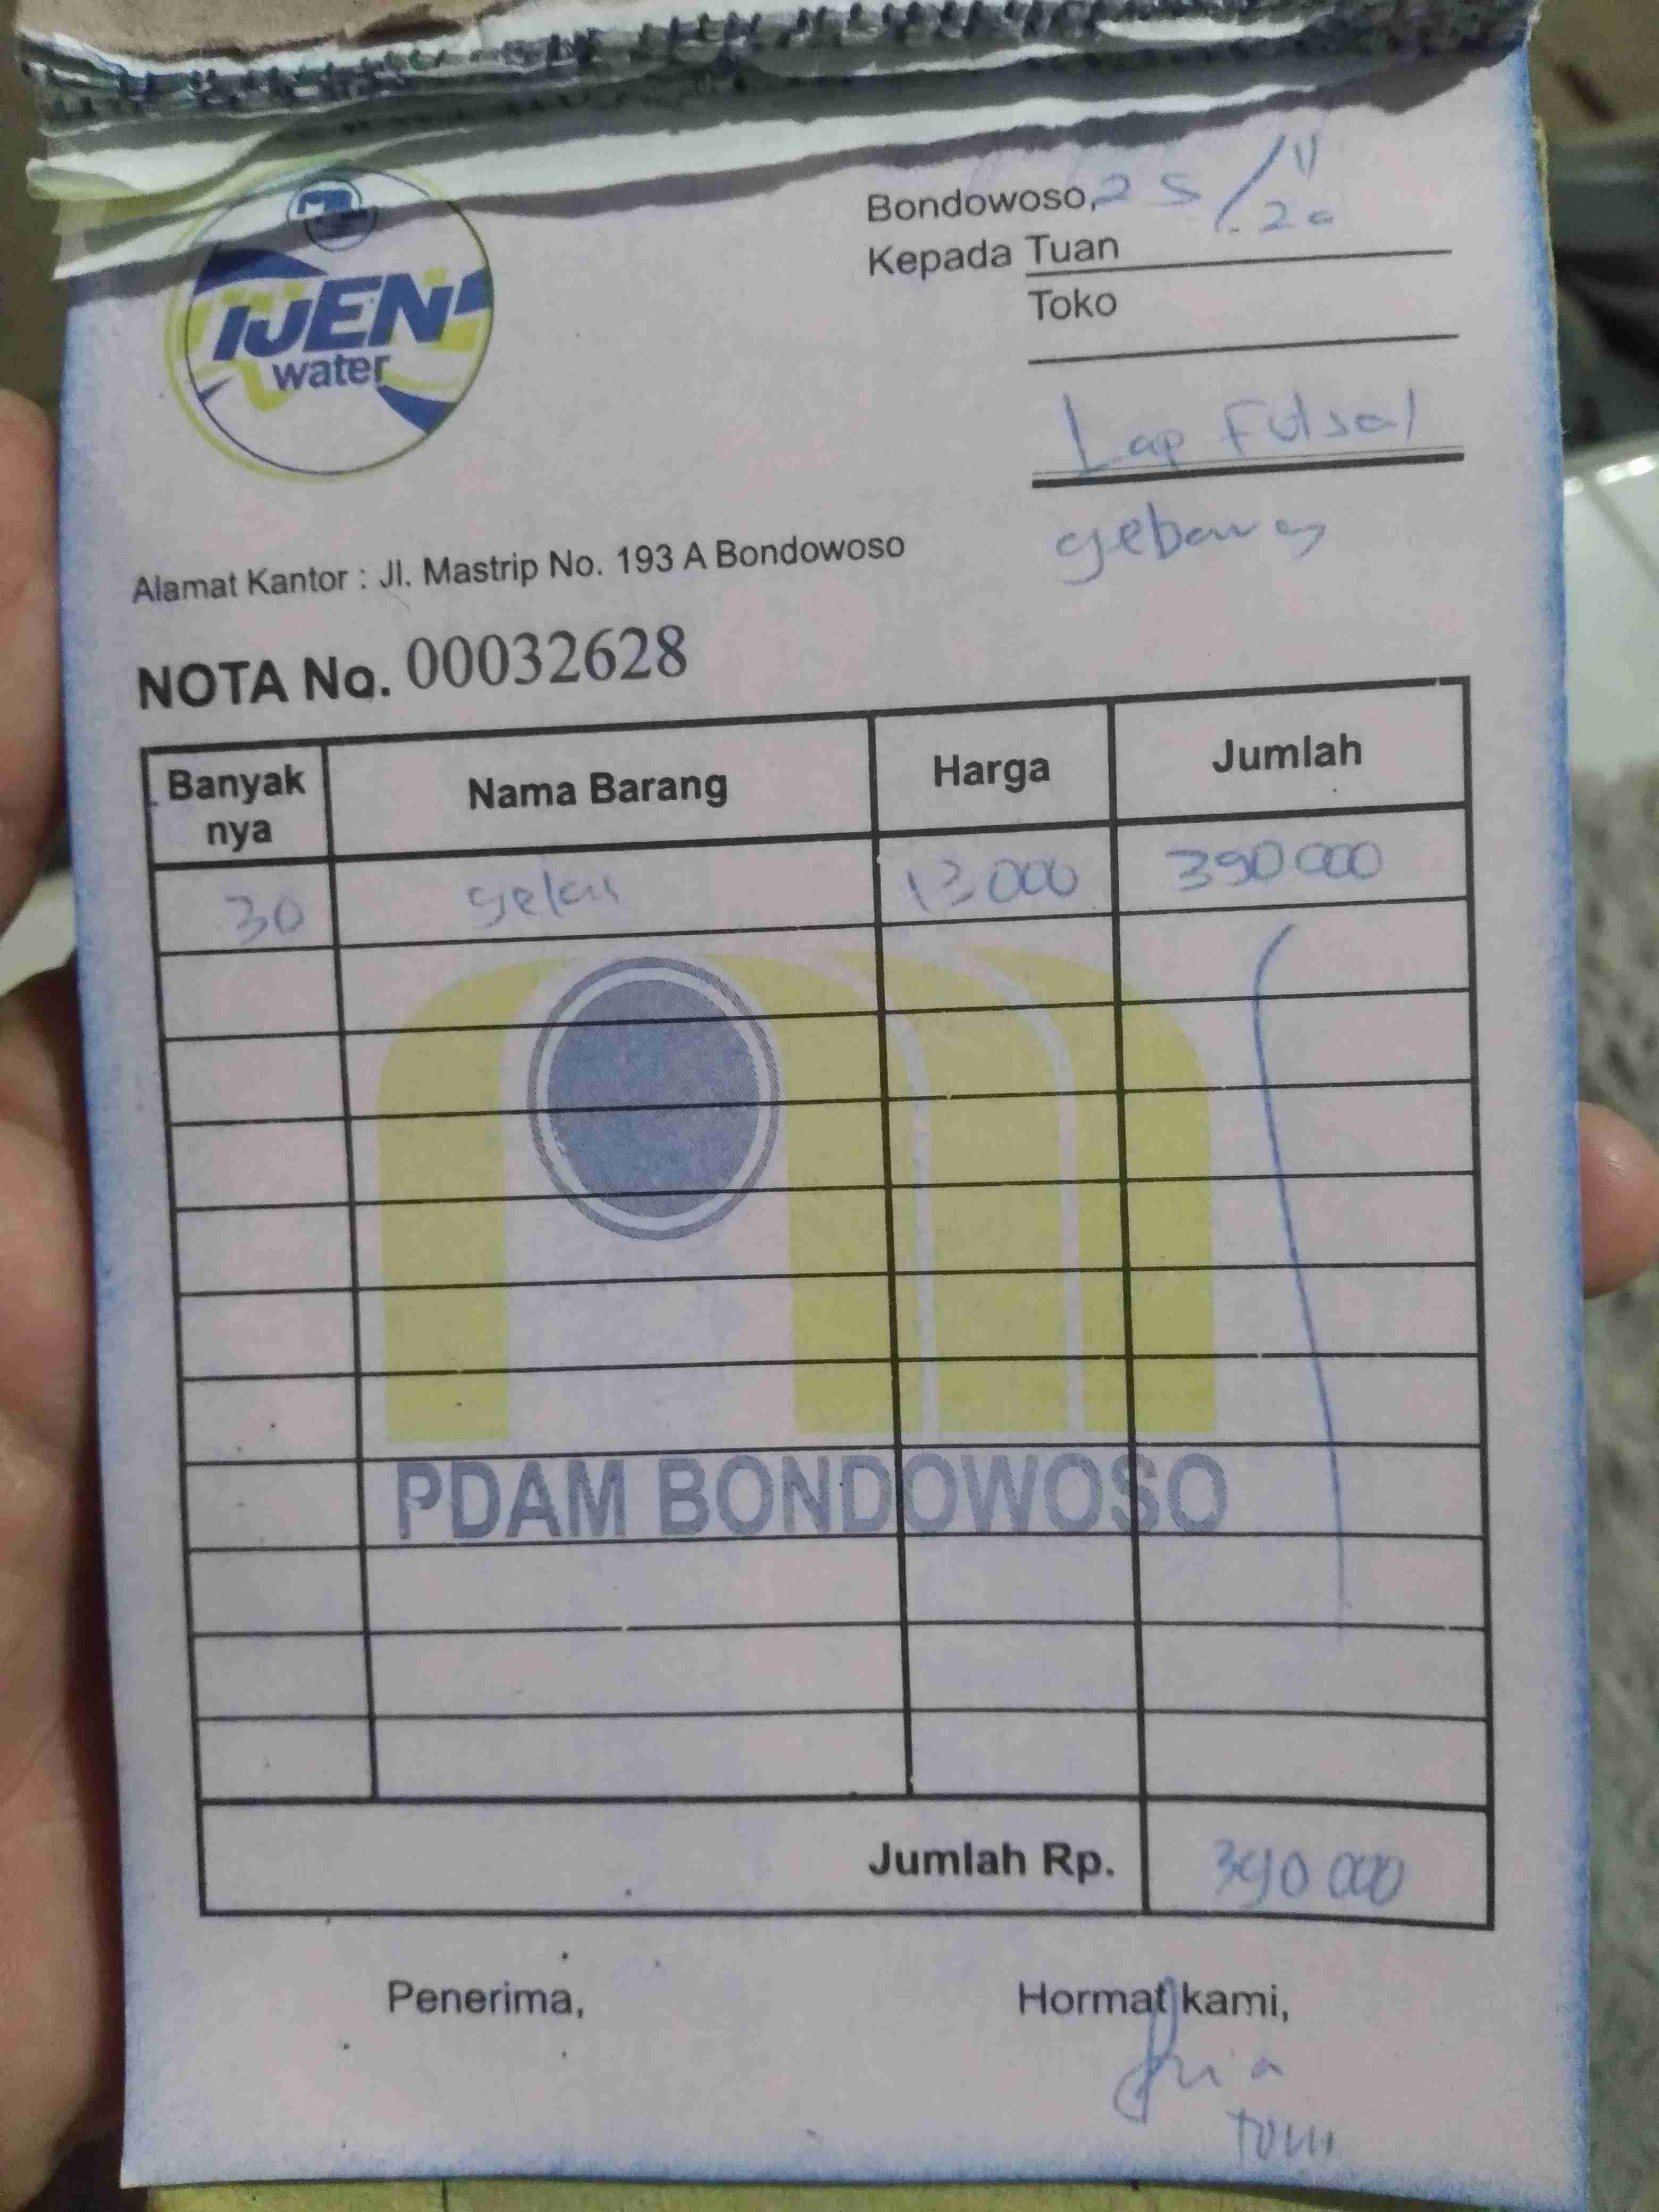 IJEN
water
Bondowoso, 25/11.20
Kepada Tuan
Toko
Lap Futsal
gebang
Alamat Kantor : Jl. Mastrip No. 193 A Bondowoso
NOTA No. 00032628
Banyak nya Nama Barang Harga Jumlah
30 gelas 13 000 390 000
PDAM BONDOWOSO
Jumlah Rp. 390 000
Penerima, Hormat kami,